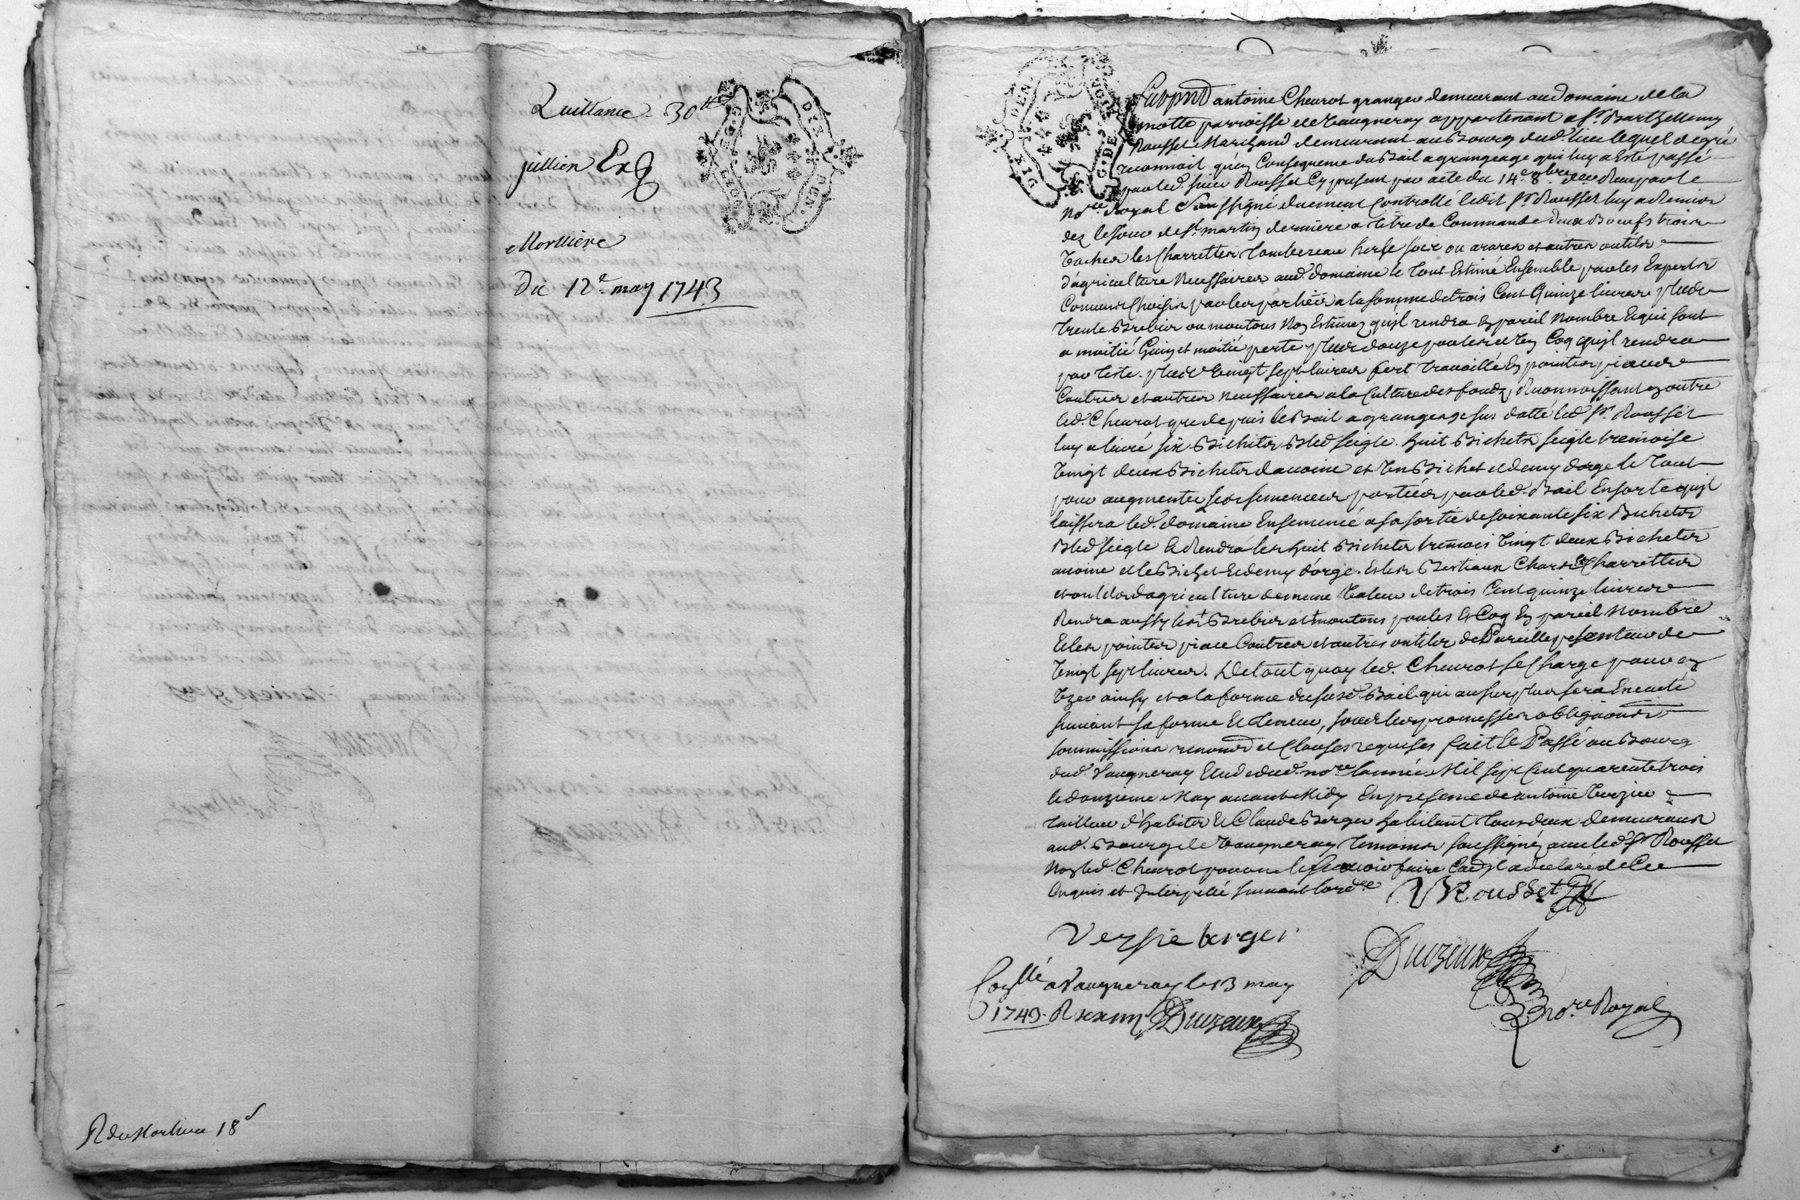 Quittance. 30tt
jullien Ex
Morlliere
Du 12e may 1743
R du Morliere 18d
antoine Cheurot granger demeurant au domaine de la
motte parroisse de Vaugneray appartenant a Sr. Barthelemy
Rousset Marchand demeurant au Bourg dud. lieu lequel de gré
reconnoit qu'en Consequence du Bail a grangeage qui luy a Esté passé
par led. Sieur Rousset Cy present par acte du 14e 8bre dernier Reçu par le
Nore. Royal soussigné duement Controllé ledit Sr Rousset luy a Remis
dez le Jour de St. martin derniere a titre de Commande deux Boeufs trois
Vaches les Charrettes Tombereau herse soc ou arares et autres outils
d'agriculture Necessaires aud. domaine le tout Estimé Ensemble par les Experts
Convenus Choisis par les parties a la somme de trois Cent Quinze livres plus
trente Brebis ou moutons Non Estimez qu'il rendra En pareil Nombre Et qui sont
a moitié Gain et moitié perte plus douze poules et Un Coq qu'il rendra
par teste. plus Vingt sept livres fert travaillé En pointes pioches
Coutres et autres necessaires a la Culture des fonds, Reconnoissant En outre
led. Cheurot que depuis le Bail a grangeage sus datté led. Sr. Rousset
luy a livré six Bichets Bled seigle. huit Bichets seigle tremoise
Vingt deux Bichets d'avoine et Un Bichet et demy d'orge le tout
pour augmenter les semences portées par led. Bail En sorte qu'il
laissera led. domaine Ensemencé a sa sortie de soixante six Bichets
Bled siegle Et Rendra les huit Bichets tremois Vingt deux Bichets
avoine et le Bichet Et demy d'orge. Et les Bestiaux Chars Et Charrettes
et outils d'agriculture de meme Valeur de trois Cent quinze livres
Rendra aussy les Brebis et moutons poules Et Coq En pareil Nombre
Et les pointes pioche Coutres et autres outils de Pareille pesanteur de
Vingt sept livres. De tout quoy led. Cheurot se Charge pour en
Vzer ainsy et a la forme du susd. Bail qui au surplus sera Executé
suivant sa forme Et teneur, sous leurs promesses obligaons
soumissions renonons et Clauses requises fait et Passé au Bourg
dud. Vaugneray Etude dud. nore. L'année Mil sept Cent quarente trois
le douzieme May avant Midy En presence de antoine Verzie
tailleur d'habits Et Claude Berger habitant tous deux demeurants
aud. Bourg de Vaugneray temoins soussignéz avec led. Sr Rousset
Non led. Cheurot pour ne le sçavoir faire Comme il a declaré de Ce
Enquis et Interpellé suivant lord.ce
Rousset
Versie berger
Duvzeux
Nore. Royal
Conllé a Vaugneray le 13 may
1743. R
Duvzeux